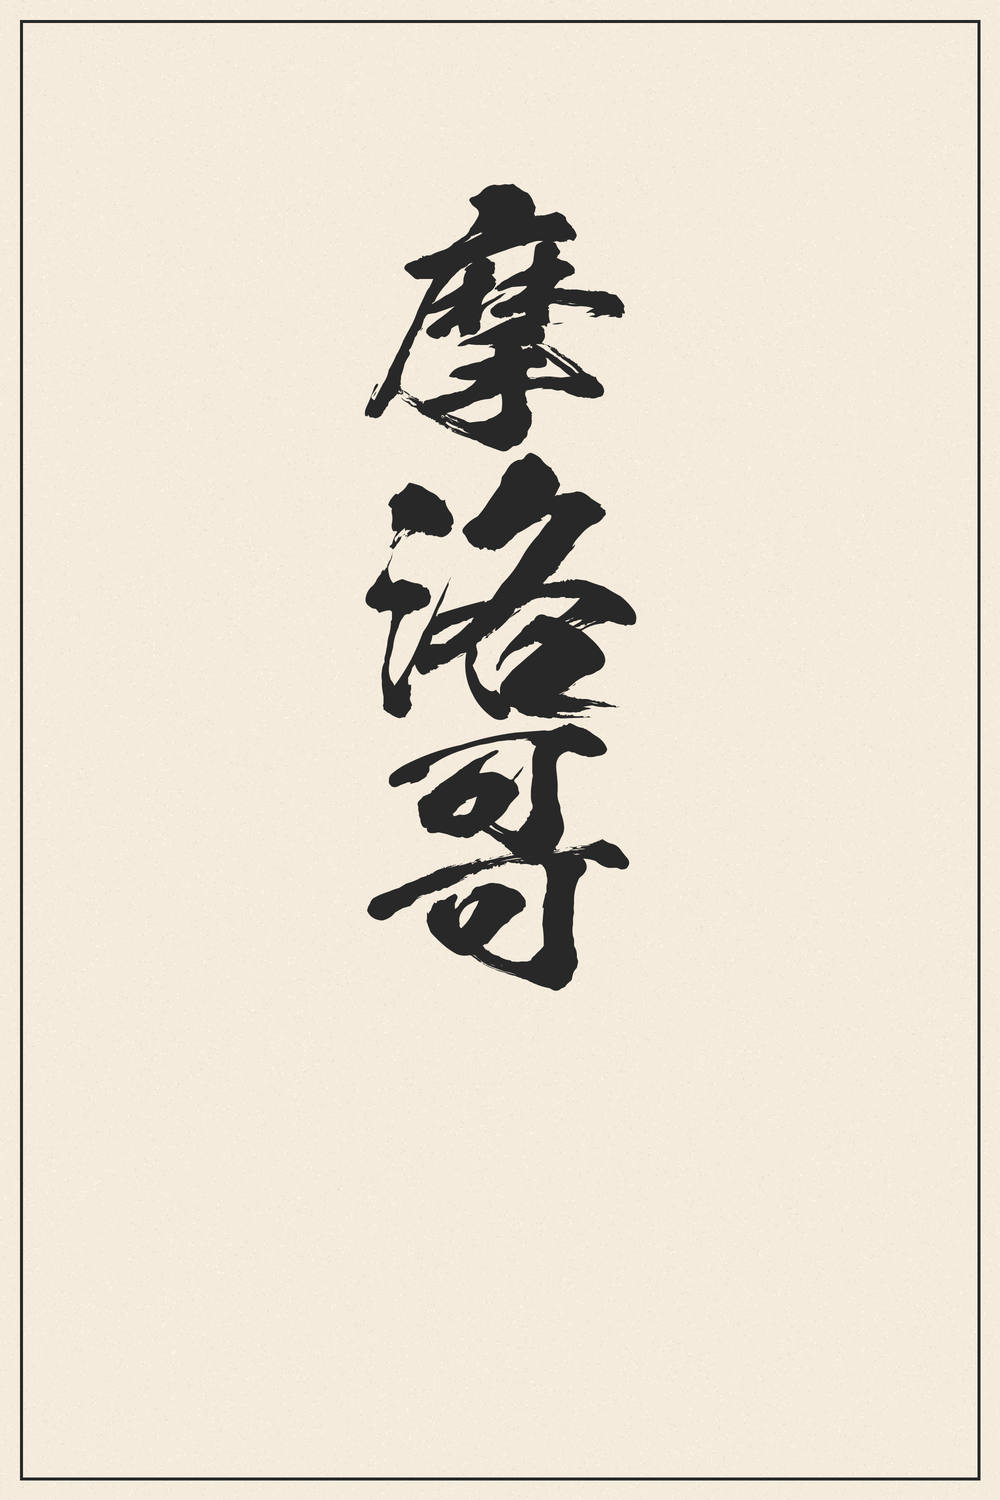 摩洛哥